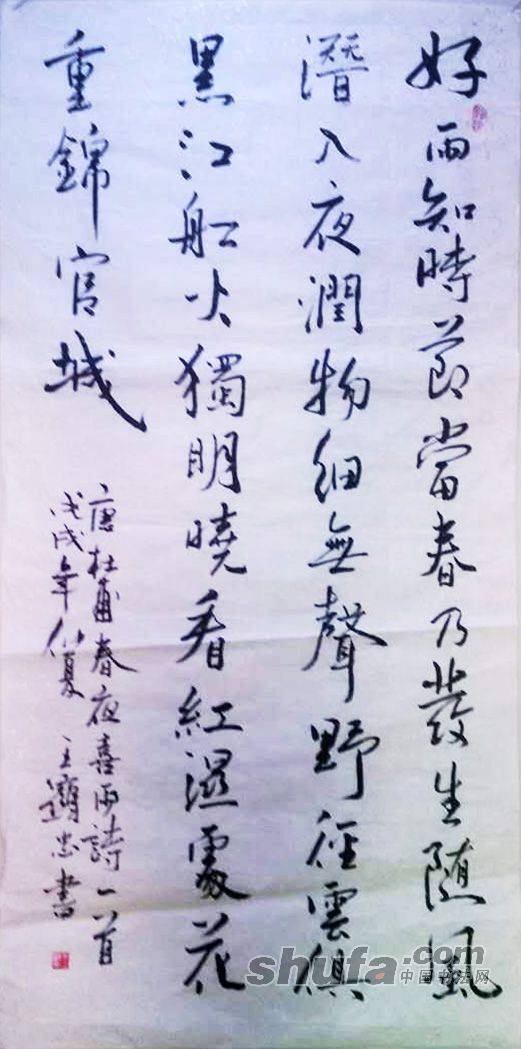 好雨知時節當春乃發生随風
潛入夜潤物細無聲野徑雲俱
黑江船火獨明曉看紅濕處花
重錦官城
唐杜甫春夜喜雨詩一首
戊戌年仲夏 王 忠書
shufa.com
中国书法网